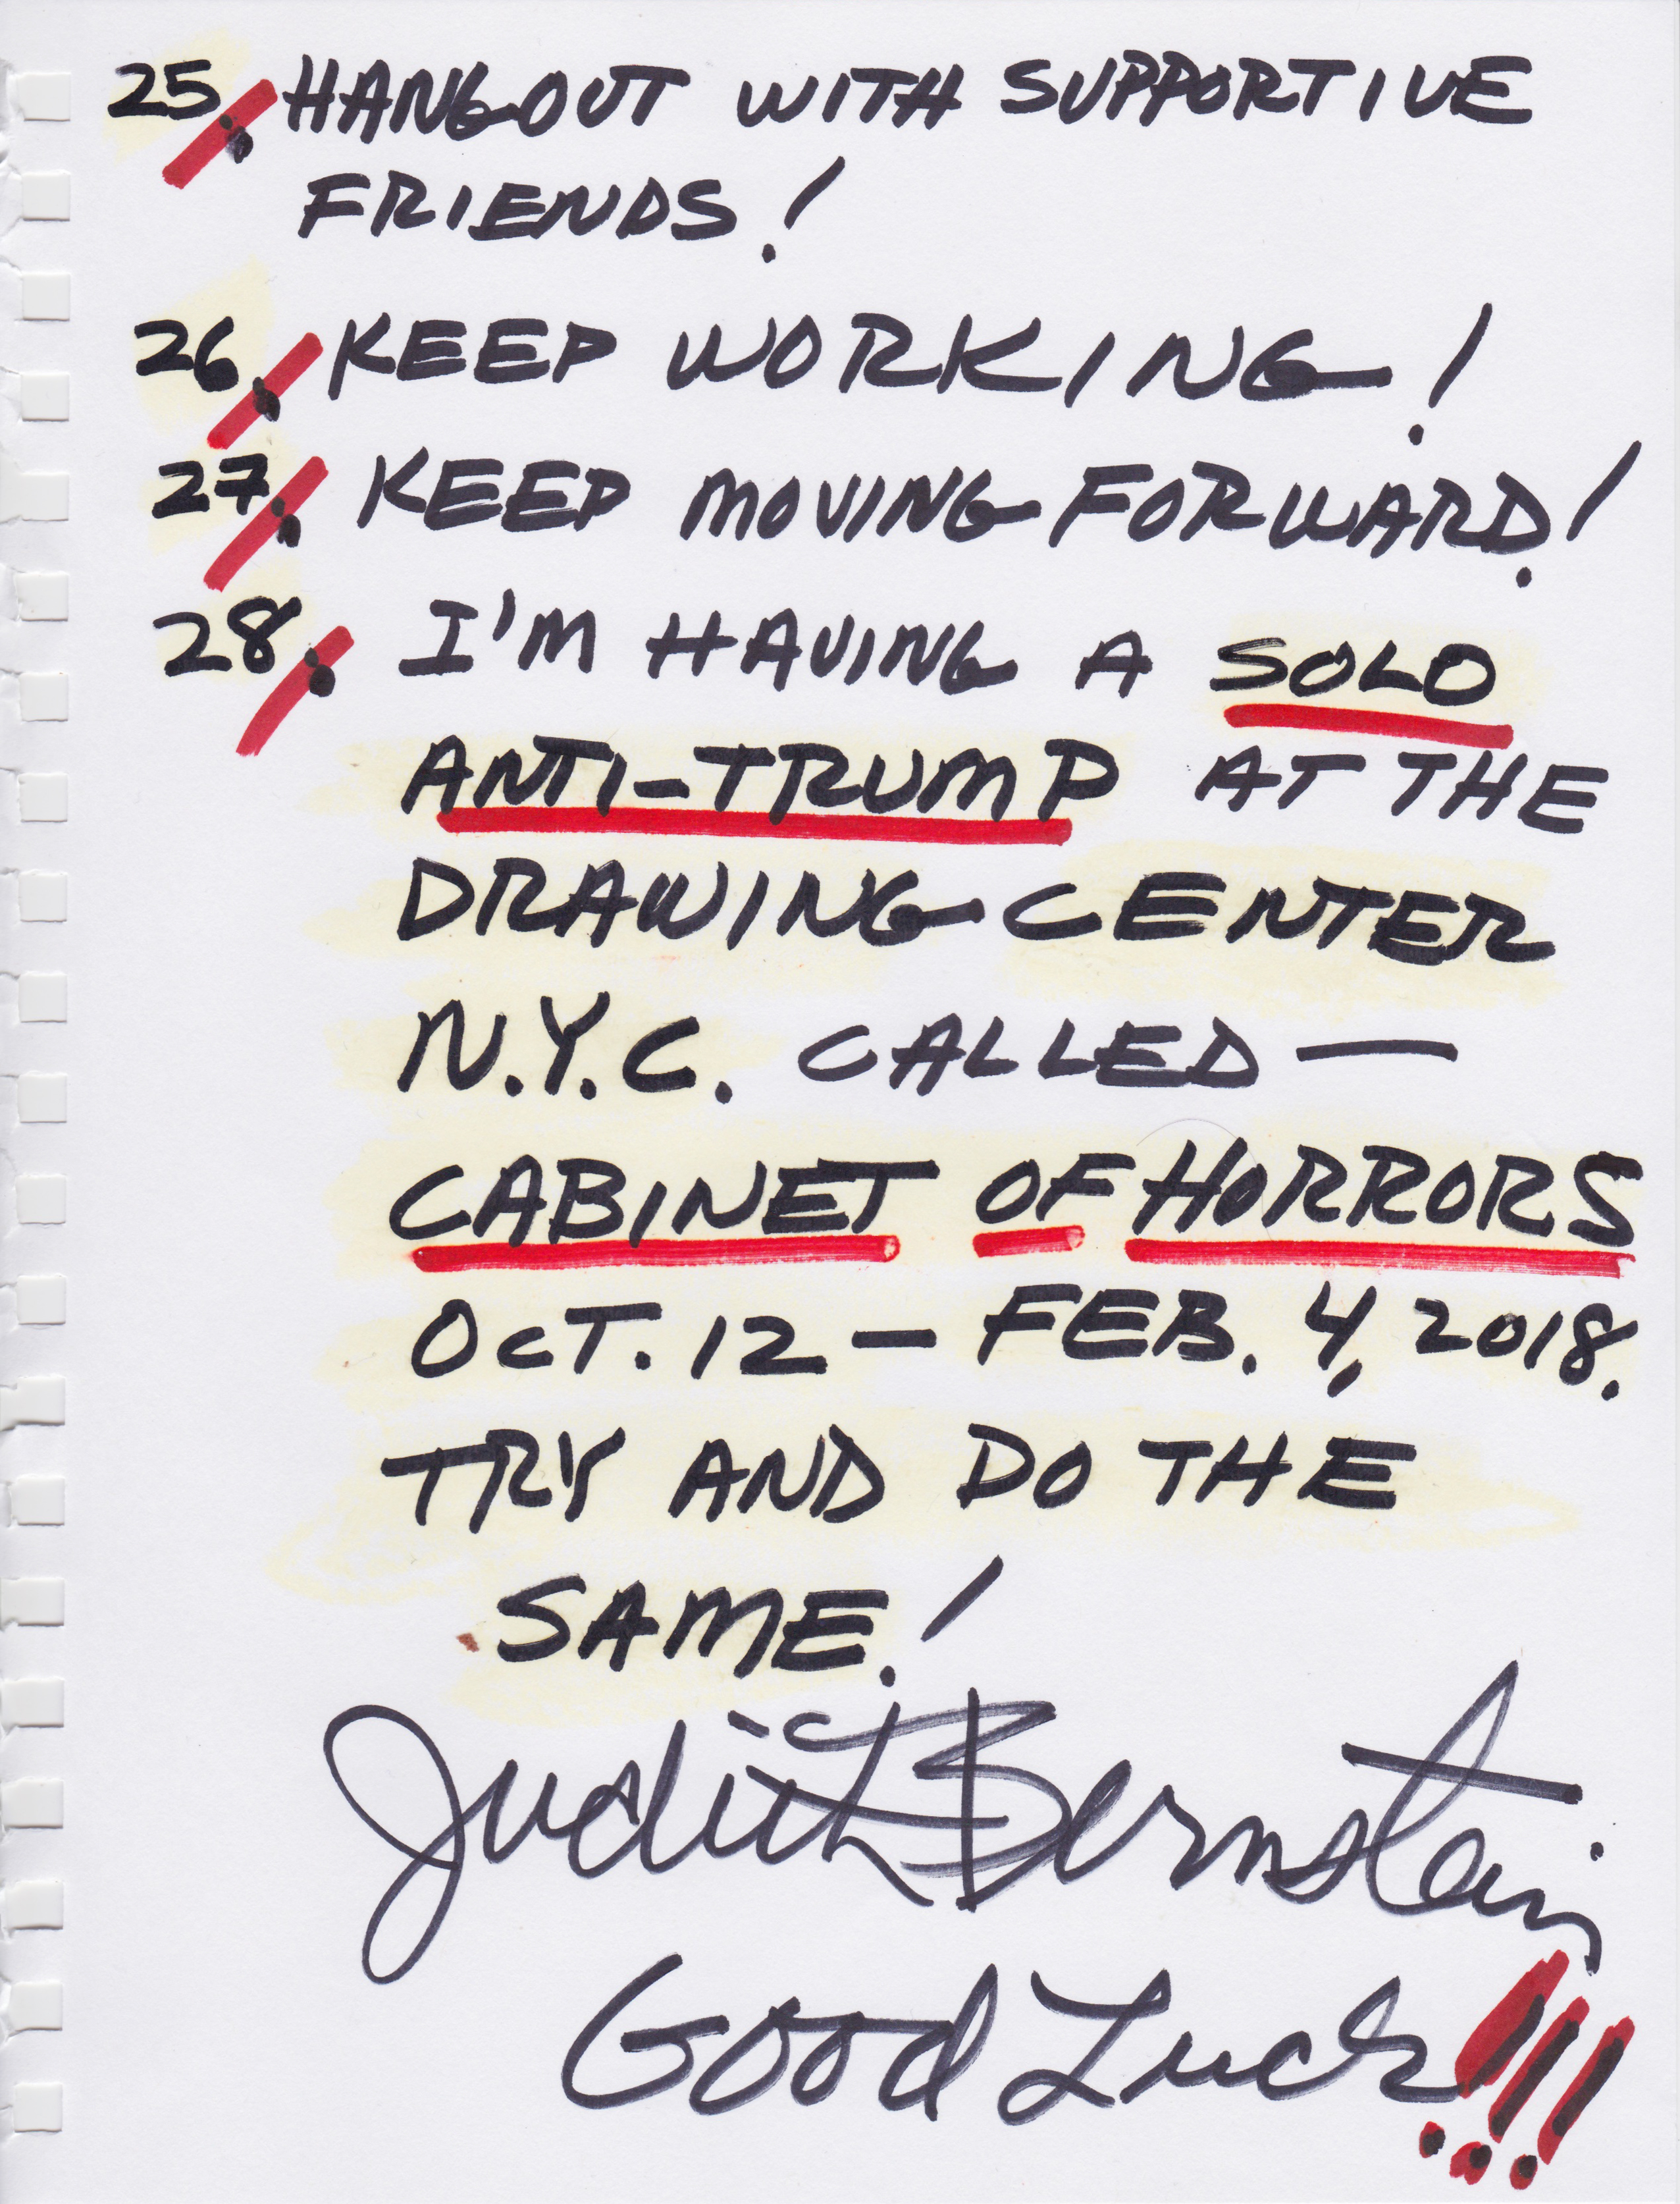 25. HANG OUT WITH SUPPORTIVE
FRIENDS!
26. KEEP WORKING!
27. KEEP MOVING FORWARD!
28. I'M HAVING A SOLO
ANTI-TRUMP AT THE
DRAWING CENTER
N.Y.C. CALLED —
CABINET OF HORRORS
OCT. 12 — FEB. 4, 2018.
TRY AND DO THE
SAME!
Judith Bernstein
Good Luck!!!